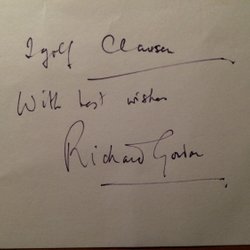 Igolf Clausen
With best wishes
Richard Gordon